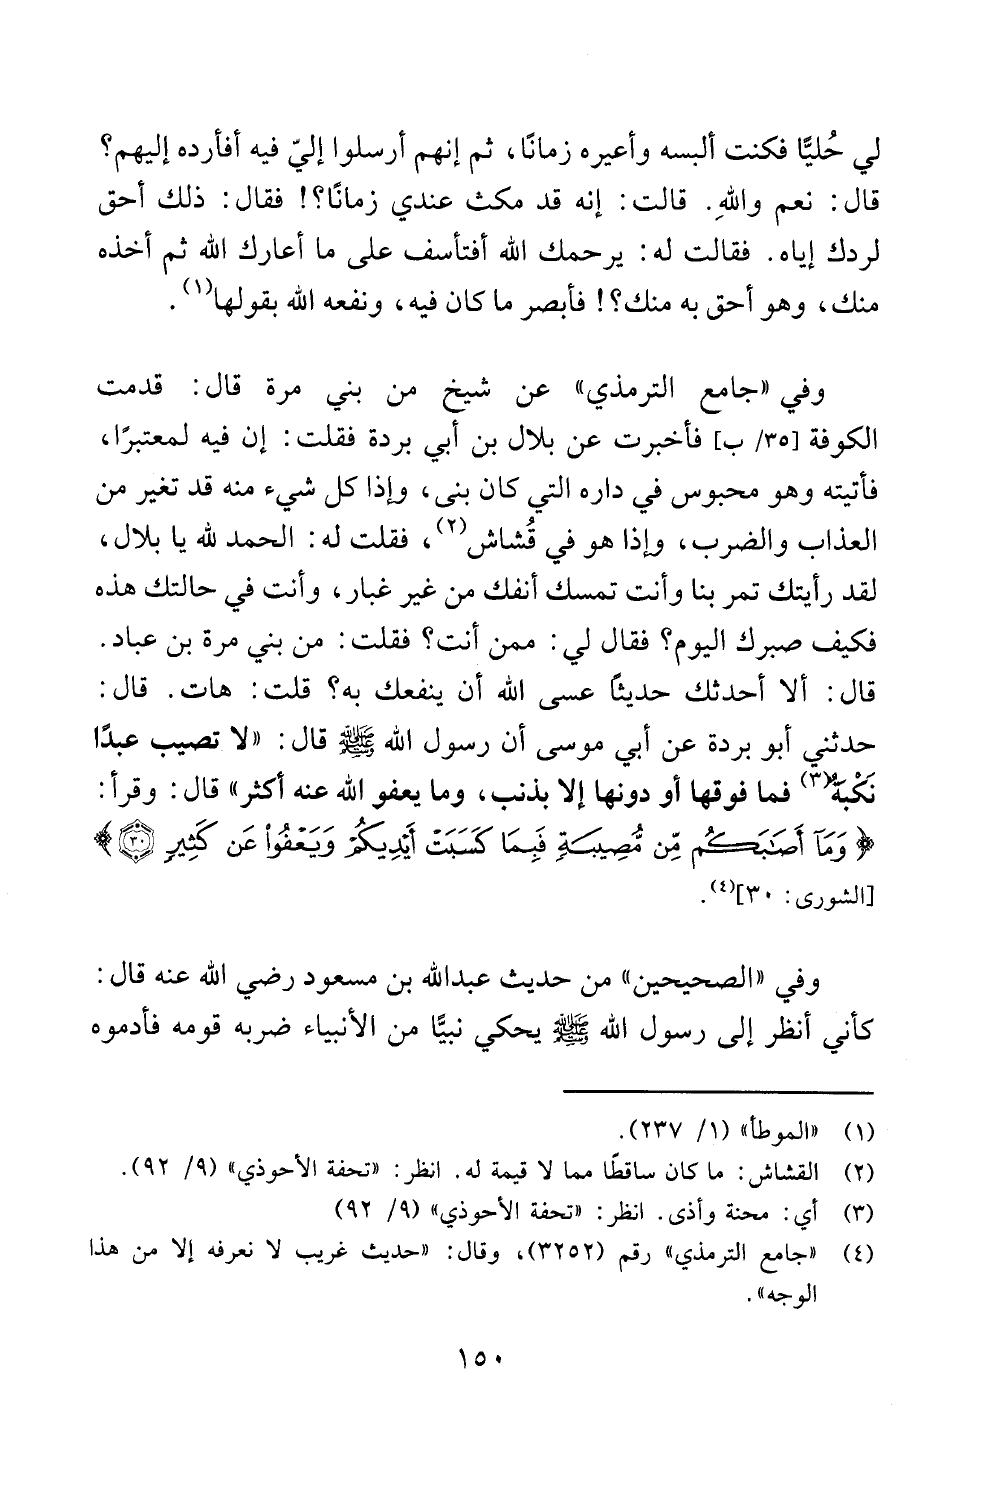 لي حُليًّا فكنت ألبسه وأعيره زمانًا، ثم إنهم أرسلوا إليّ فيه أفأرده إليهم؟
قال: نعم واللهِ. قالت: إنه قد مكث عندي زمانًا؟! فقال: ذلك أحق
لردك إياه. فقالت له: يرحمك الله أفتأسف على ما أعارك الله ثم أخذه
منك، وهو أحق به منك؟! فأبصر ما كان فيه، ونفعه الله بقولها(١).
وفي «جامع الترمذي» عن شيخ من بني مرة قال: قدمت
الكوفة [٣٥/ ب] فأخبرت عن بلال بن أبي بردة فقلت: إن فيه لمعتبرًا،
فأتيته وهو محبوس في داره التي كان بنى، وإذا كل شيء منه قد تغير من
العذاب والضرب، وإذا هو في قُشاش(٢)، فقلت له: الحمد لله يا بلال،
لقد رأيتك تمر بنا وأنت تمسك أنفك من غير غبار، وأنت في حالتك هذه
فكيف صبرك اليوم؟ فقال لي: ممن أنت؟ فقلت: من بني مرة بن عباد.
قال: ألا أحدثك حديثًا عسى الله أن ينفعك به؟ قلت: هات. قال:
حدثني أبو بردة عن أبي موسى أن رسول الله ﷺ قال: «لا تصيب عبدًا
نَكْبَةٌ(٣) فما فوقها أو دونها إلا بذنب، وما يعفو الله عنه أكثر» قال: وقرأ:
﴿ وَمَآ أَصَٰبَكُم مِّن مُّصِيبَةٍ فَبِمَا كَسَبَتْ أَيْدِيكُمْ وَيَعْفُواْ عَن كَثِيرٍ ٣٠ ﴾
[الشورى: ٣٠](٤).
وفي «الصحيحين» من حديث عبدالله بن مسعود رضي الله عنه قال:
كأني أنظر إلى رسول الله ﷺ يحكي نبيًّا من الأنبياء ضربه قومه فأدموه
(١) «الموطأ» (١/ ٢٣٧).
(٢) القشاش: ما كان ساقطًا مما لا قيمة له. انظر: «تحفة الأحوذي» (٩/ ٩٢).
(٣) أي: محنة وأذى. انظر: «تحفة الأحوذي» (٩/ ٩٢)
(٤) «جامع الترمذي» رقم (٣٢٥٢)، وقال: «حديث غريب لا نعرفه إلا من هذا
الوجه».
١٥٠